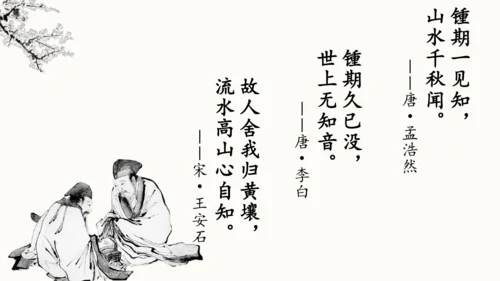 锺期一见知，
山水千秋闻。
——唐·孟浩然
锺期久已没，
世上无知音。
——唐·李白
故人舍我归黄壤，
流水高山心自知。
——宋·王安石